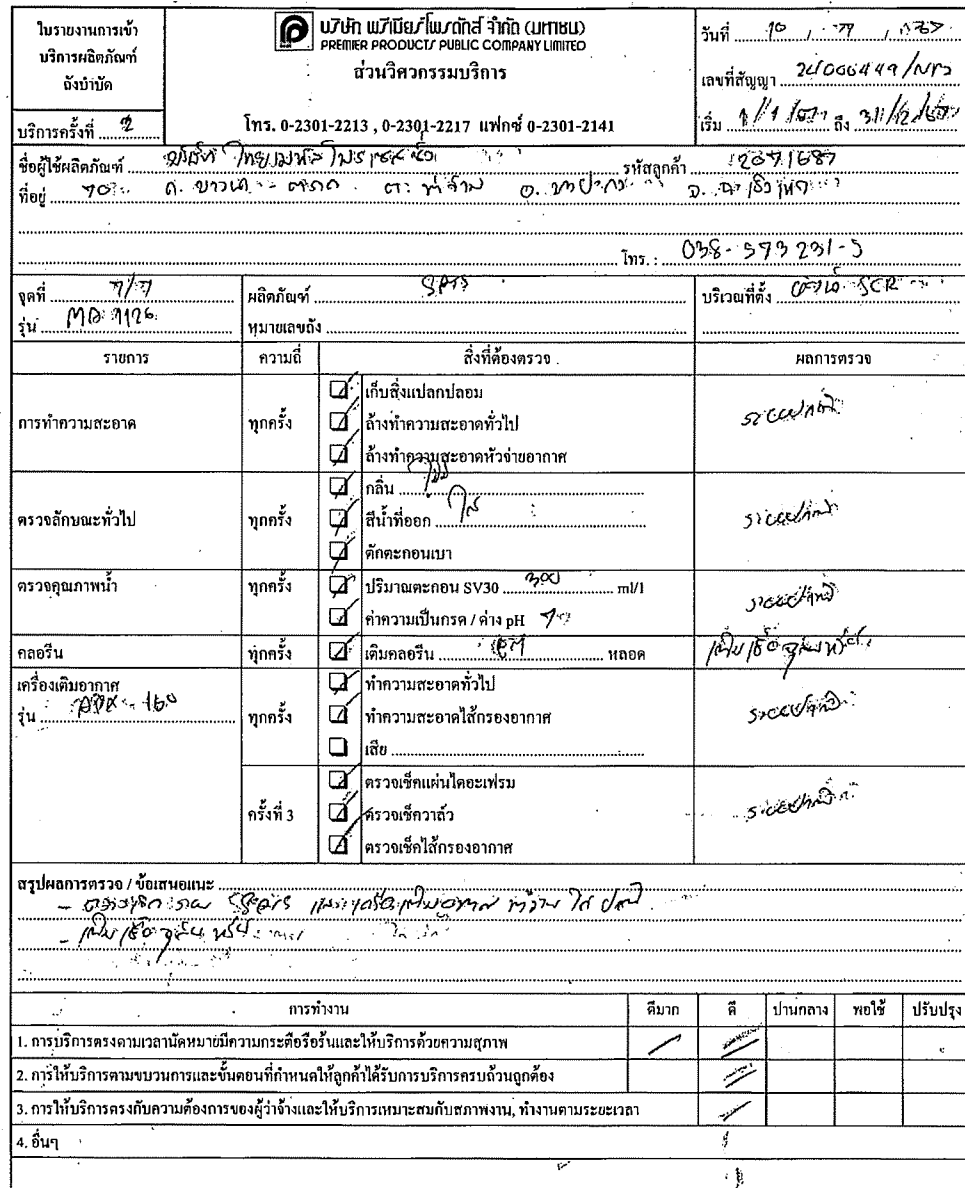 ใบรายงานการเข้า
บริการผลิตภัณฑ์
ถังบำบัด
บริการครั้งที่ 2
บริษัท พรีเมียร์โพรดักส์ จำกัด (มหาชน)
PREMIER PRODUCTS PUBLIC COMPANY LIMITED
ส่วนวิศวกรรมบริการ
โทร. 0-2301-2213 , 0-2301-2217 แฟกซ์ 0-2301-2141
วันที่
เลขที่สัญญา
เริ่ม 1/1/ ถึง 31/12/
ชื่อผู้ใช้ผลิตภัณฑ์ บริษัท รหัสลูกค้า
ที่อยู่
โทร. : 038-573231-5
จุดที่ 1/1 ผลิตภัณฑ์ บริเวณที่ตั้ง
รุ่น หมายเลขถัง
รายการ ความถี่ สิ่งที่ต้องตรวจ ผลการตรวจ
การทำความสะอาด ทุกครั้ง เก็บสิ่งแปลกปลอม ระบบปกติ
ล้างทำความสะอาดทั่วไป
ล้างทำความสะอาดหัวจ่ายอากาศ
ตรวจลักษณะทั่วไป ทุกครั้ง กลิ่น ระบบปกติ
สีน้ำที่ออก ใส
ตักตะกอนเบา
ตรวจคุณภาพน้ำ ทุกครั้ง ปริมาณตะกอน SV30 300 ml/l ระบบปกติ
ค่าความเป็นกรด / ด่าง pH
คลอรีน ทุกครั้ง เติมคลอรีน หลอด เติมเชื้อจุลินทรีย์
เครื่องเติมอากาศ ทุกครั้ง ทำความสะอาดทั่วไป ระบบปกติ
รุ่น ทำความสะอาดไส้กรองอากาศ
เสีย
ครั้งที่ 3 ตรวจเช็คแผ่นไดอะเฟรม ระบบปกติ
ตรวจเช็ควาล์ว
ตรวจเช็คไส้กรองอากาศ
สรุปผลการตรวจ / ข้อเสนอแนะ
- เติมเชื้อจุลินทรีย์
การทำงาน ดีมาก ดี ปานกลาง พอใช้ ปรับปรุง
1. การบริการตรงตามเวลานัดหมายมีความกระตือรือร้นและให้บริการด้วยความสุภาพ
2. การให้บริการตามขบวนการและขั้นตอนที่กำหนดให้ลูกค้าได้รับการบริการครบถ้วนถูกต้อง
3. การให้บริการตรงกับความต้องการของผู้ว่าจ้างและให้บริการเหมาะสมกับสภาพงาน, ทำงานตามระยะเวลา
4. อื่นๆ